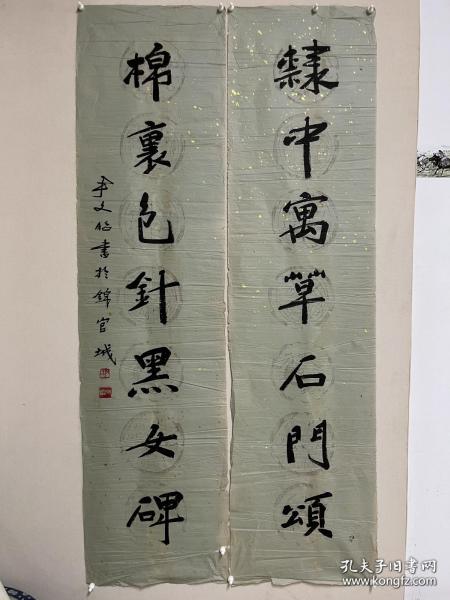 隸中寓草石門頌
棉裏包針黑女碑
書於錦官城
孔夫子旧书网
www.kongfz.com